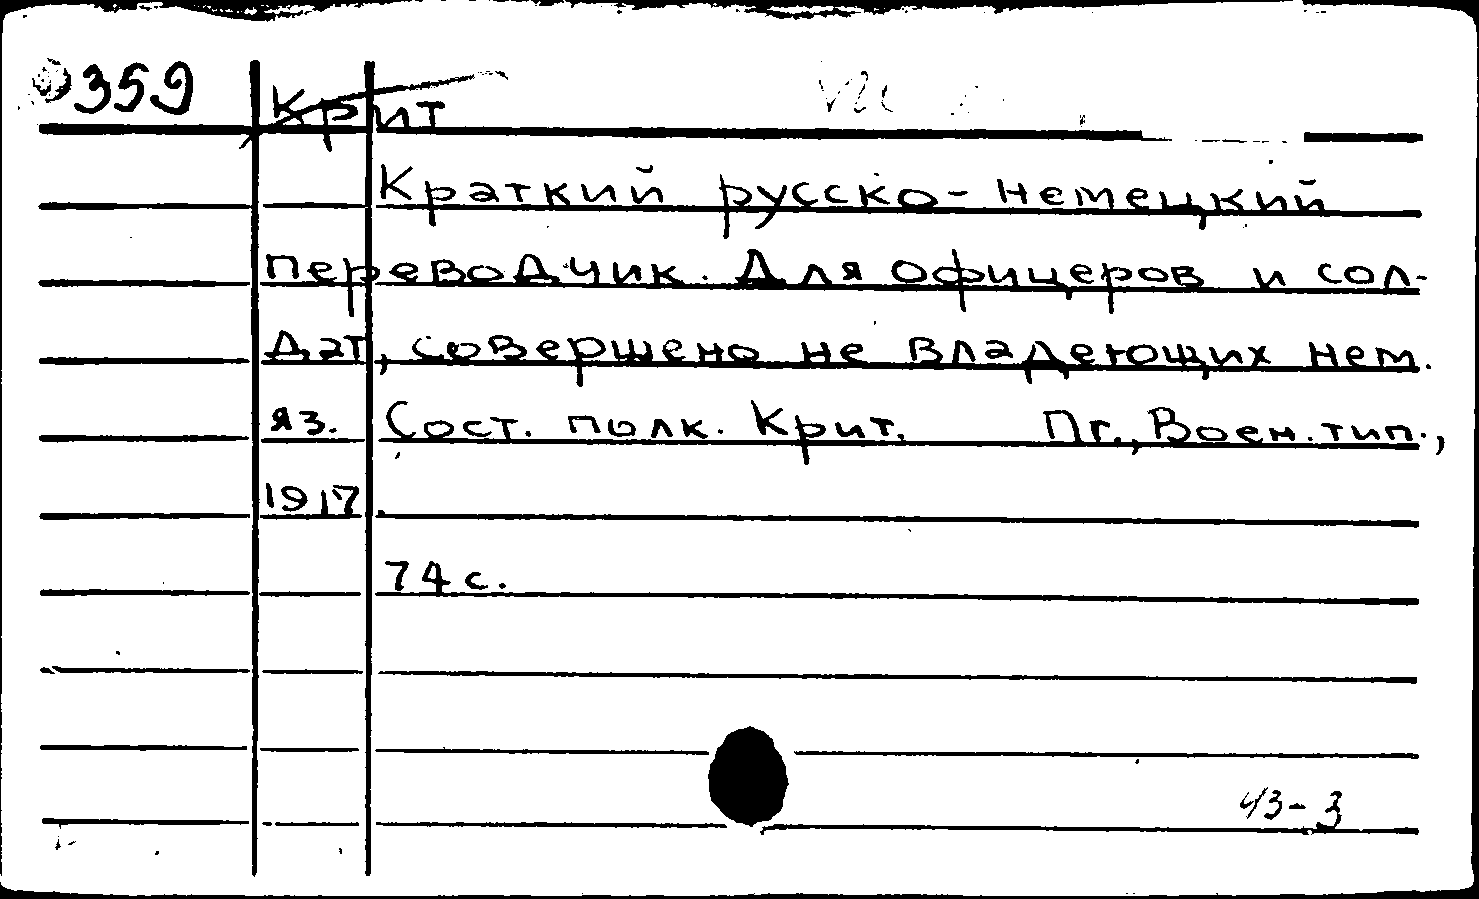 359
Крит
Краткий русско-немецкий
переводчик. Для офицеров и сол-
дат, совершено не владеющих нем.
яз. Сост. полк. Крит. Пг., Воен. тип.,
1917.
74 с.
43-3